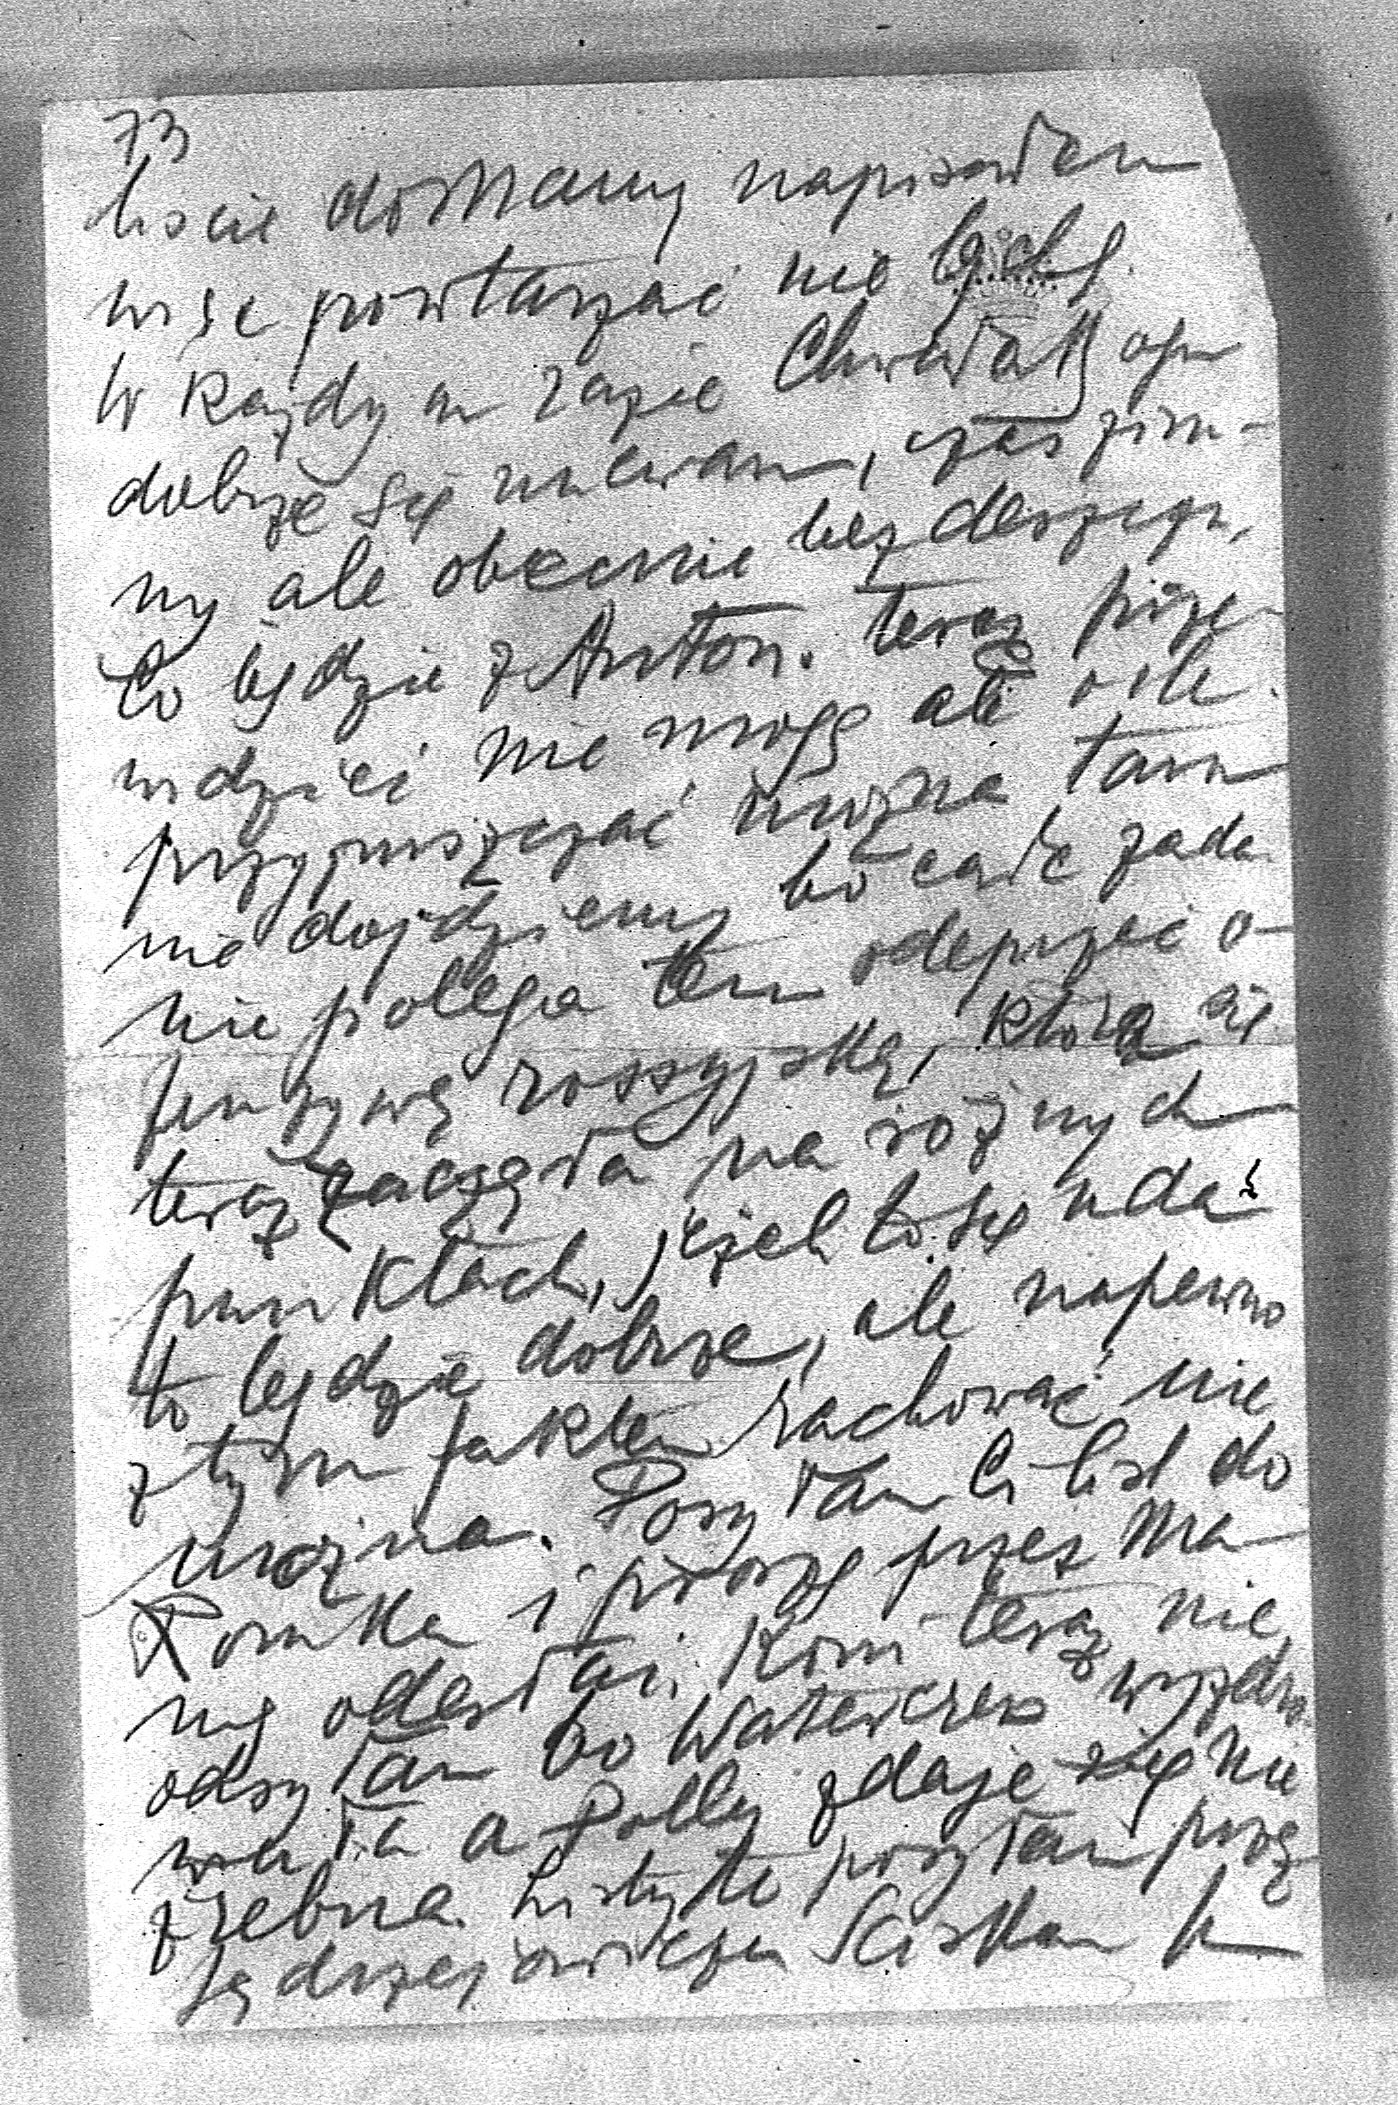 73
liście do Mamy napisałem
więc powtarzać nie będę.
W każdym razie Chwała B. ogr.
dobrze się miewam, czas zim-
ny ale obecnie bez deszczu,
Co będzie z Anton. teraz prze-
widzieć nie mogę ale o ile
przypuszczać można tam
nie dojdziemy bo całe zada-
nie polega tem odeprzeć o-
fenzywę rossyjską, która się
teraz zaczęła na różnych
punktach, jeżeli to się uda
to będzie dobrze, ale napewno
z tym faktem rachować nie
można. Posyłam Ci list do
Romka i proszę przez Ma-
mę odesłać. Koni teraz nie
odsyłam bo Watercress wyzdro-
wiała a Polly zdaje się nie
źrebna. Listy te posyłam przez
Jędrzejowicza Ściskam